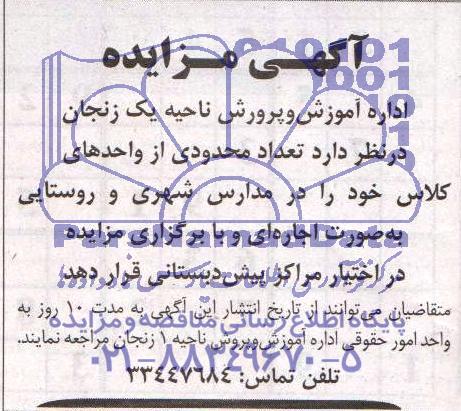 آگهـی مـزایده
اداره آموزش‌وپرورش ناحیه یک زنجان
درنظر دارد تعداد محدودی از واحدهای
کلاس خود را در مدارس شهری و روستایی
به‌صورت اجاره‌ای و با برگزاری مزایده
در اختیار مراکز پیش‌دبستانی قرار دهد.
متقاضیان می‌توانند از تاریخ انتشار این آگهی به مدت ۱۰ روز به
پایگاه اطلاع رسانی مناقصه و مزایده
واحد امور حقوقی اداره آموزش‌وپروس ناحیه ۱ زنجان مراجعه نمایند.
۰۲۱-۸۸۳۴۹۶۷۰-۵
تلفن تماس: ۳۳۴۴۷۶۸۴